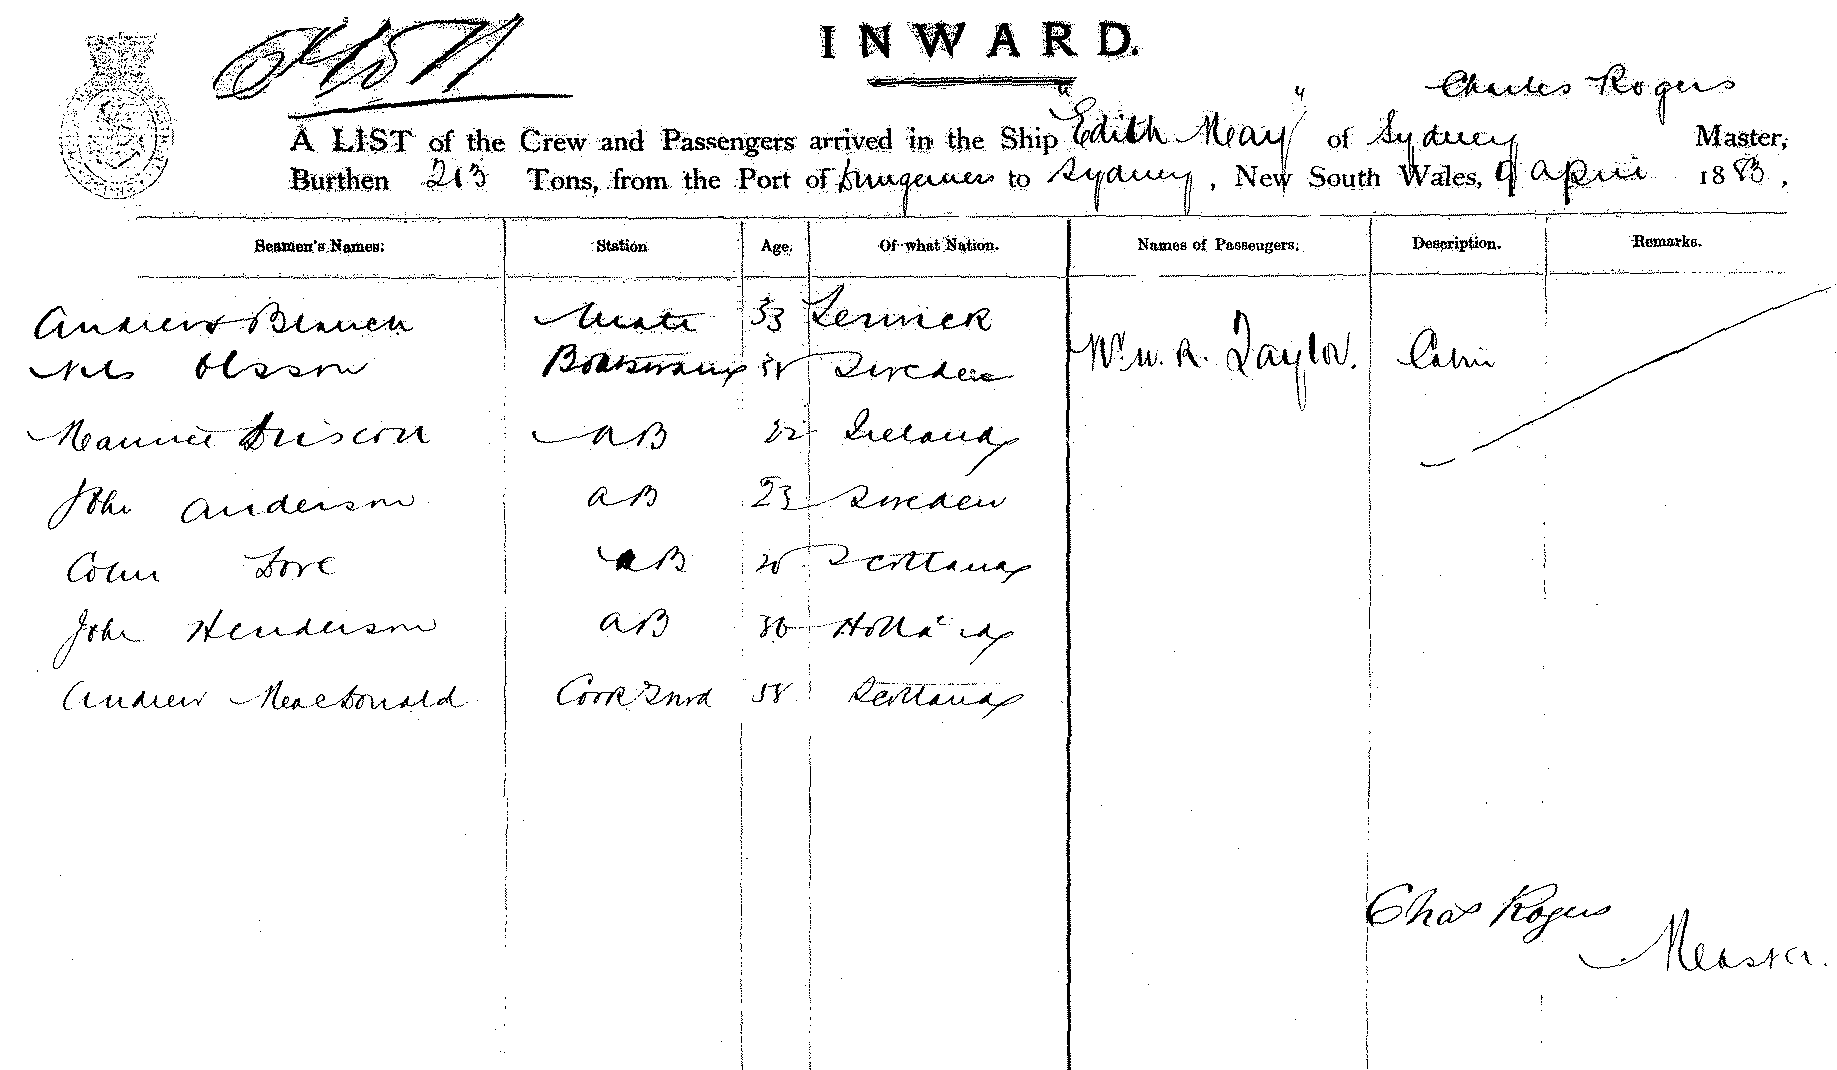 INWARD.
Charles Rogers
A LIST of the Crew and Passengers arrived in the Ship "Edith May" of Sydney Master,
Burthen 213 Tons, from the Port of to Sydney, New South Wales, 9 April 1883.
Seamen's Names. Station Age. Of what Nation. Names of Passengers. Description. Remarks.
Andrew Mate 33 Lerwick
Nils Olsson Boatswain 38 Sweden Mr W. R. Taylor. Cabin
Maurice Driscoll AB 22 Ireland
John Anderson AB 23 Sweden
Colin Dove AB Scotland
John Henderson AB 30 Holland
Andrew MacDonald Cook & Stwd 58 Scotland
Chas Rogers
Master.